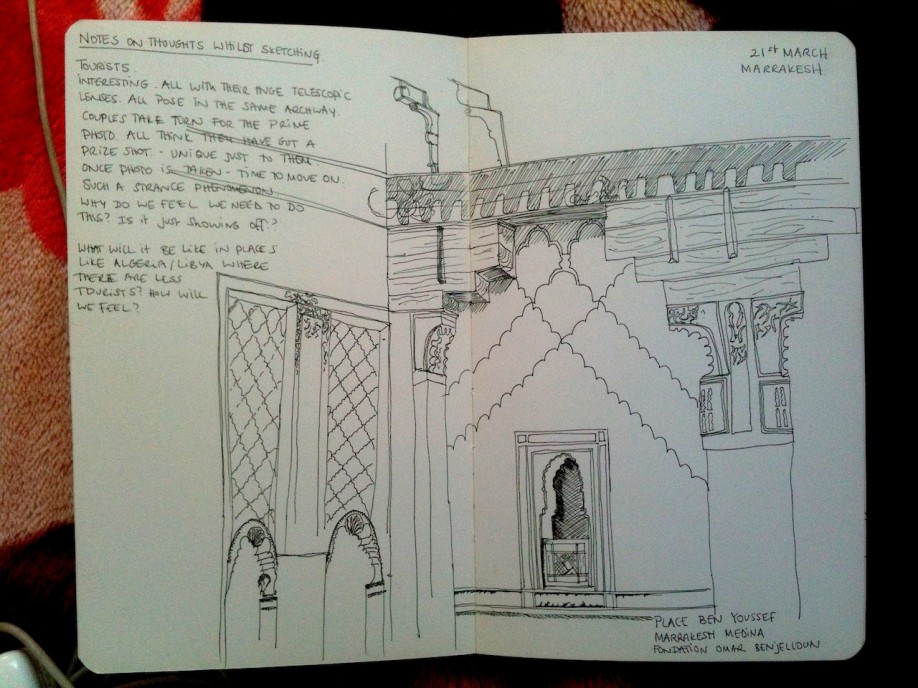 NOTES ON THOUGHTS WHILST SKETCHING
TOURISTS.
INTERESTING. ALL WITH THEIR HUGE TELESCOPIC
LENSES. ALL POSE IN THE SAME ARCHWAY.
COUPLES TAKE TURN FOR THE PRIME
PHOTO. ALL THINK THEY HAVE GOT A
PRIZE SHOT. - UNIQUE JUST TO THEM.
ONCE PHOTO IS TAKEN - TIME TO MOVE ON.
SUCH A STRANGE PHENOMENON.
WHY DO WE FEEL WE NEED TO DO
THIS? IS it just showing off?
WHAT WILL IT BE LIKE IN PLACES
LIKE ALGERIA/LIBYA WHERE
THERE ARE LESS
TOURISTS? HOW WILL
WE FEEL?
21st MARCH
MARRAKESH
PLACE BEN YOUSSEF
MARRAKESH MEDINA
FONDATION OMAR BENJELLOUN